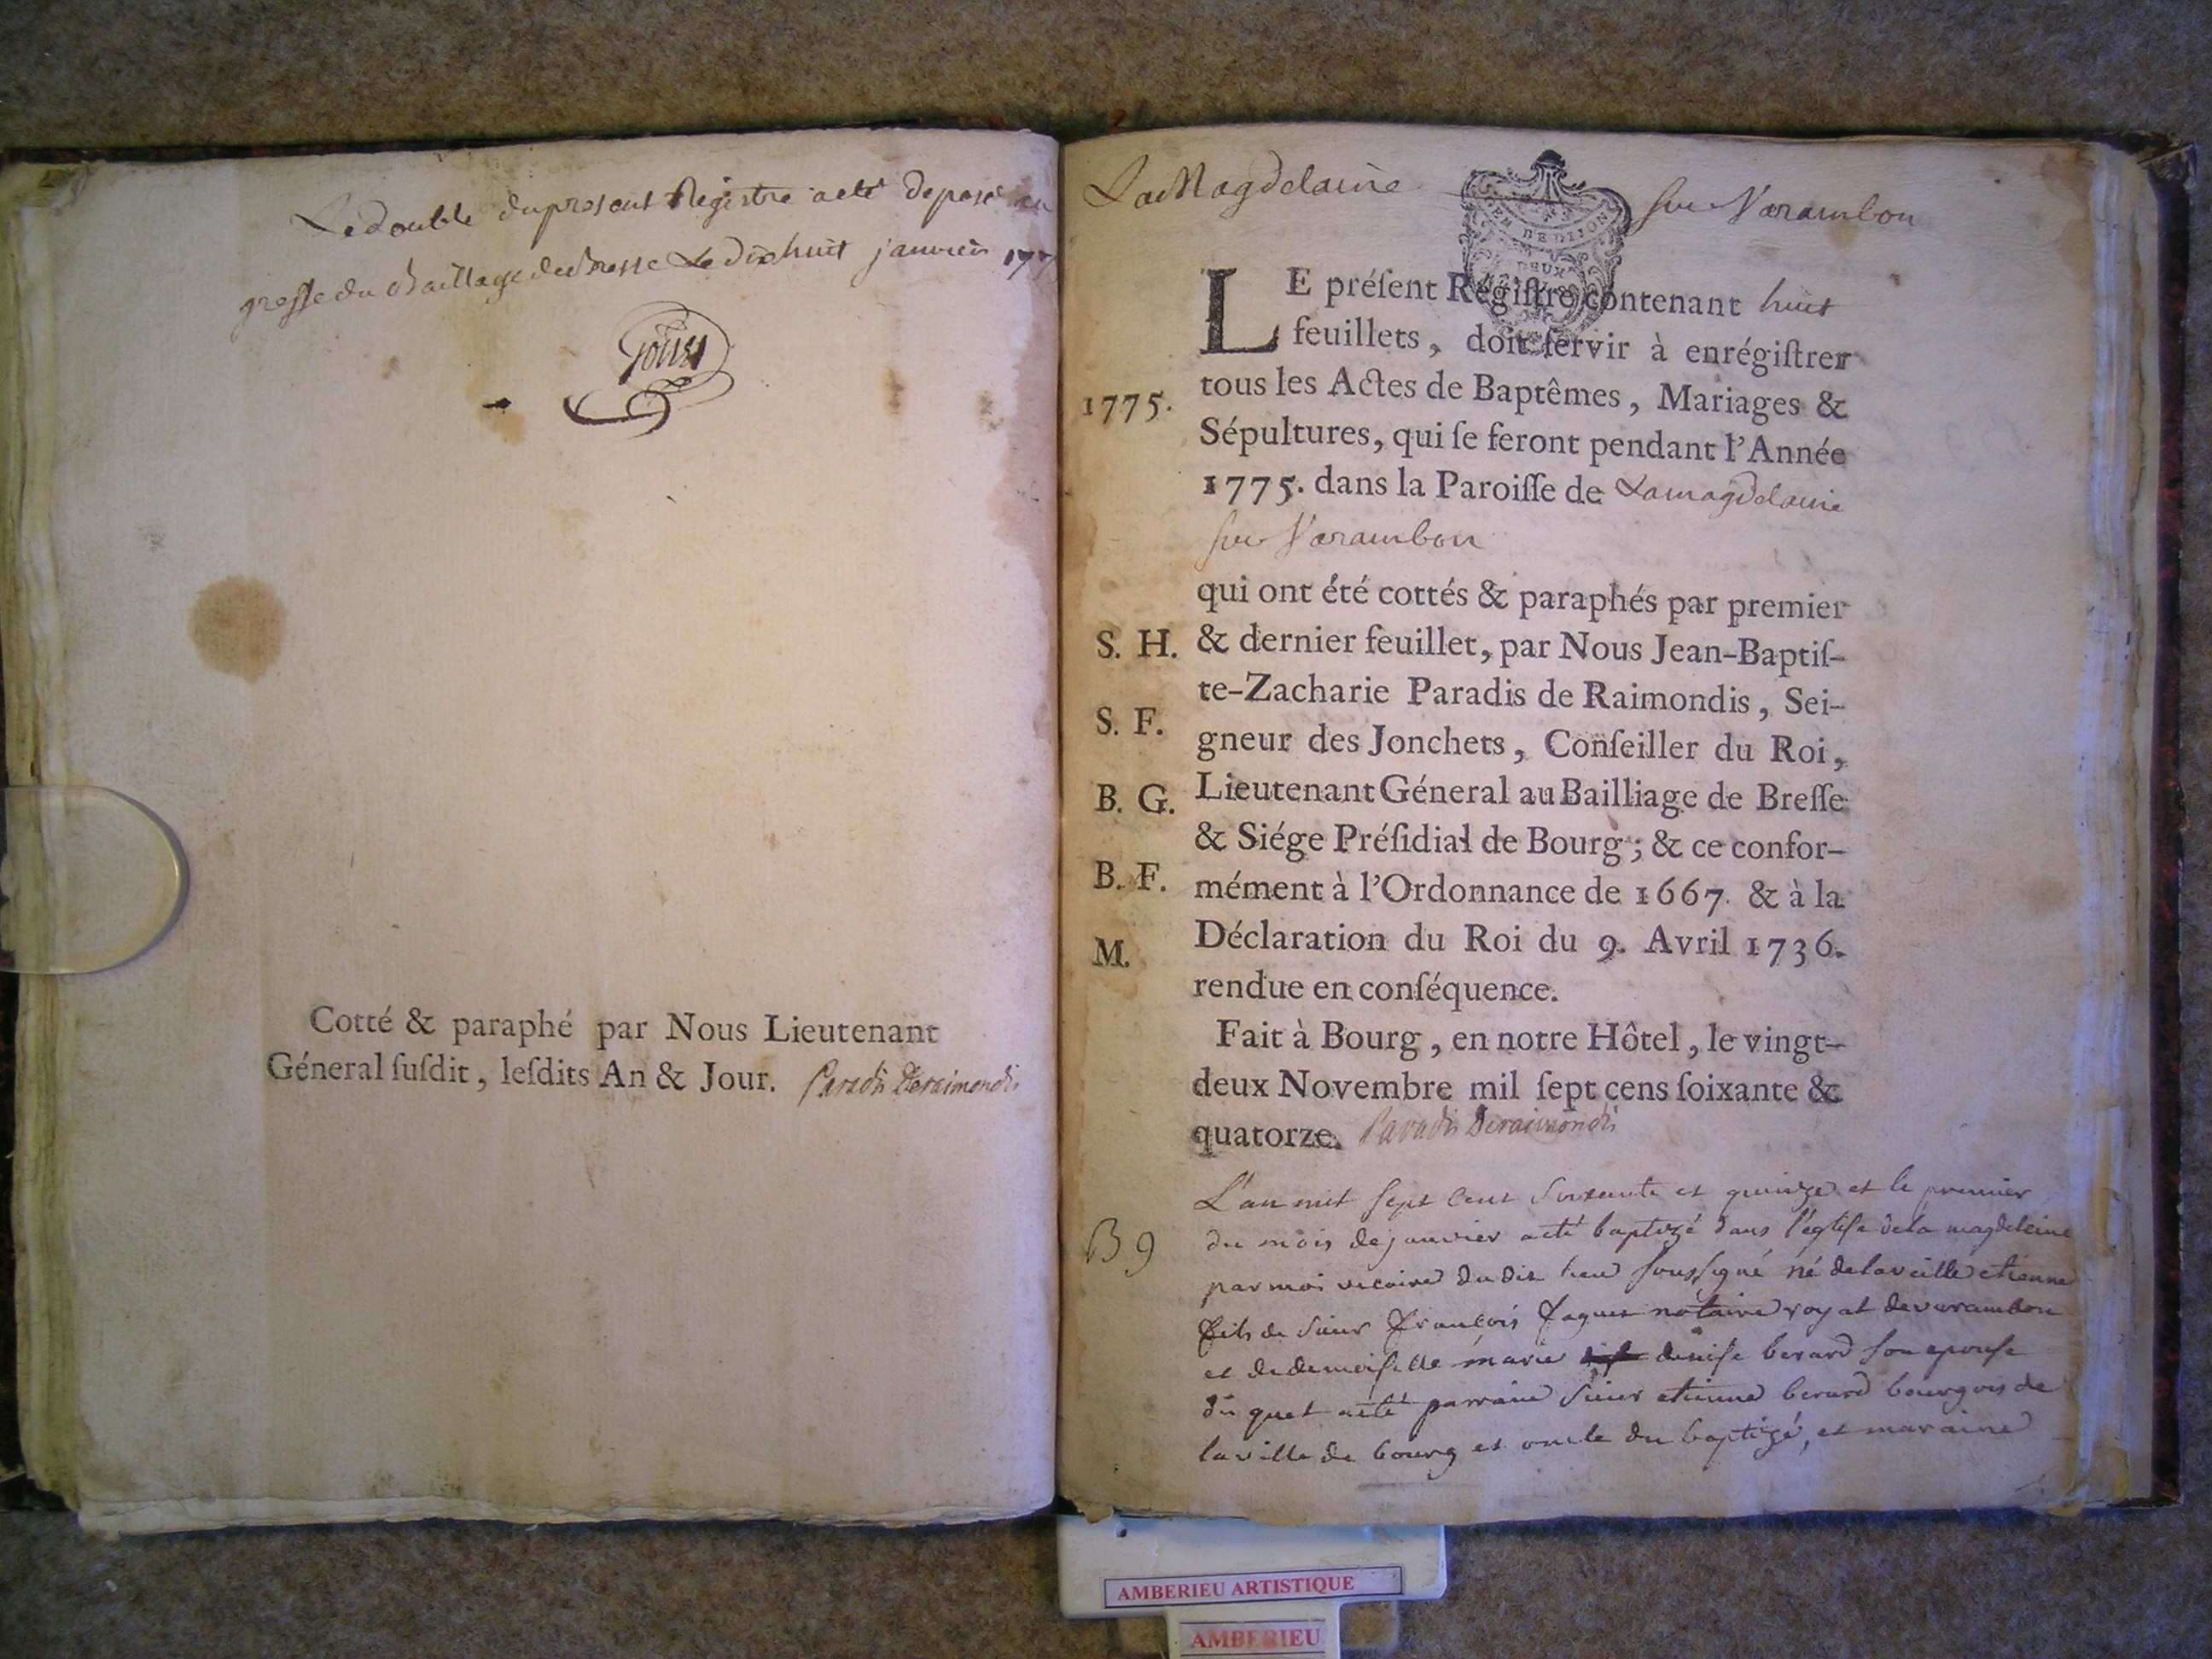 Le double du present Registre a eté deposé au
greffe du Baillage de Bresse Le dixhuit janvier 177
Cotté & paraphé par Nous Lieutenant
Géneral susdit, lesdits An & Jour. Paradis Deraimondis
La Magdelaine sur Varambon
DE DIJON
DEUX
LE préſent Régiſtre contenant huit
feuillets, doit ſervir à enrégiſtrer
1775. tous les Actes de Baptêmes, Mariages &
Sépultures, qui ſe feront pendant l'Année
1775. dans la Paroiſſe de Lamagdelaine
sur Varambon
qui ont été cottés & paraphés par premier
S. H. & dernier feuillet, par Nous Jean-Baptiſ-
te-Zacharie Paradis de Raimondis, Sei-
S. F. gneur des Jonchets, Conſeiller du Roi,
B. G. Lieutenant Géneral au Bailliage de Breſſe
& Siége Préſidial de Bourg; & ce confor-
B. F. mément à l'Ordonnance de 1667. & à la
M. Déclaration du Roi du 9. Avril 1736.
rendue en conſéquence.
Fait à Bourg, en notre Hôtel, le vingt-
deux Novembre mil ſept cens ſoixante &
quatorze. Paradis Deraimondis
L'an mil sept cent soixante et quinze et le premier
B 9 du mois de janvier a eté baptizé dans l'église de la magdeleine
par moi vicaire du dit lieu soussigné né de la veille etienne
fils de sieur françois Jaquet notaire royal de varambon
et de demoiselle marie denise berard son epouse
du quel a eté parrain sieur etienne berard bourgois de
la ville de bourg et oncle du baptizé, et maraine
AMBERIEU ARTISTIQUE
AMBERIEU